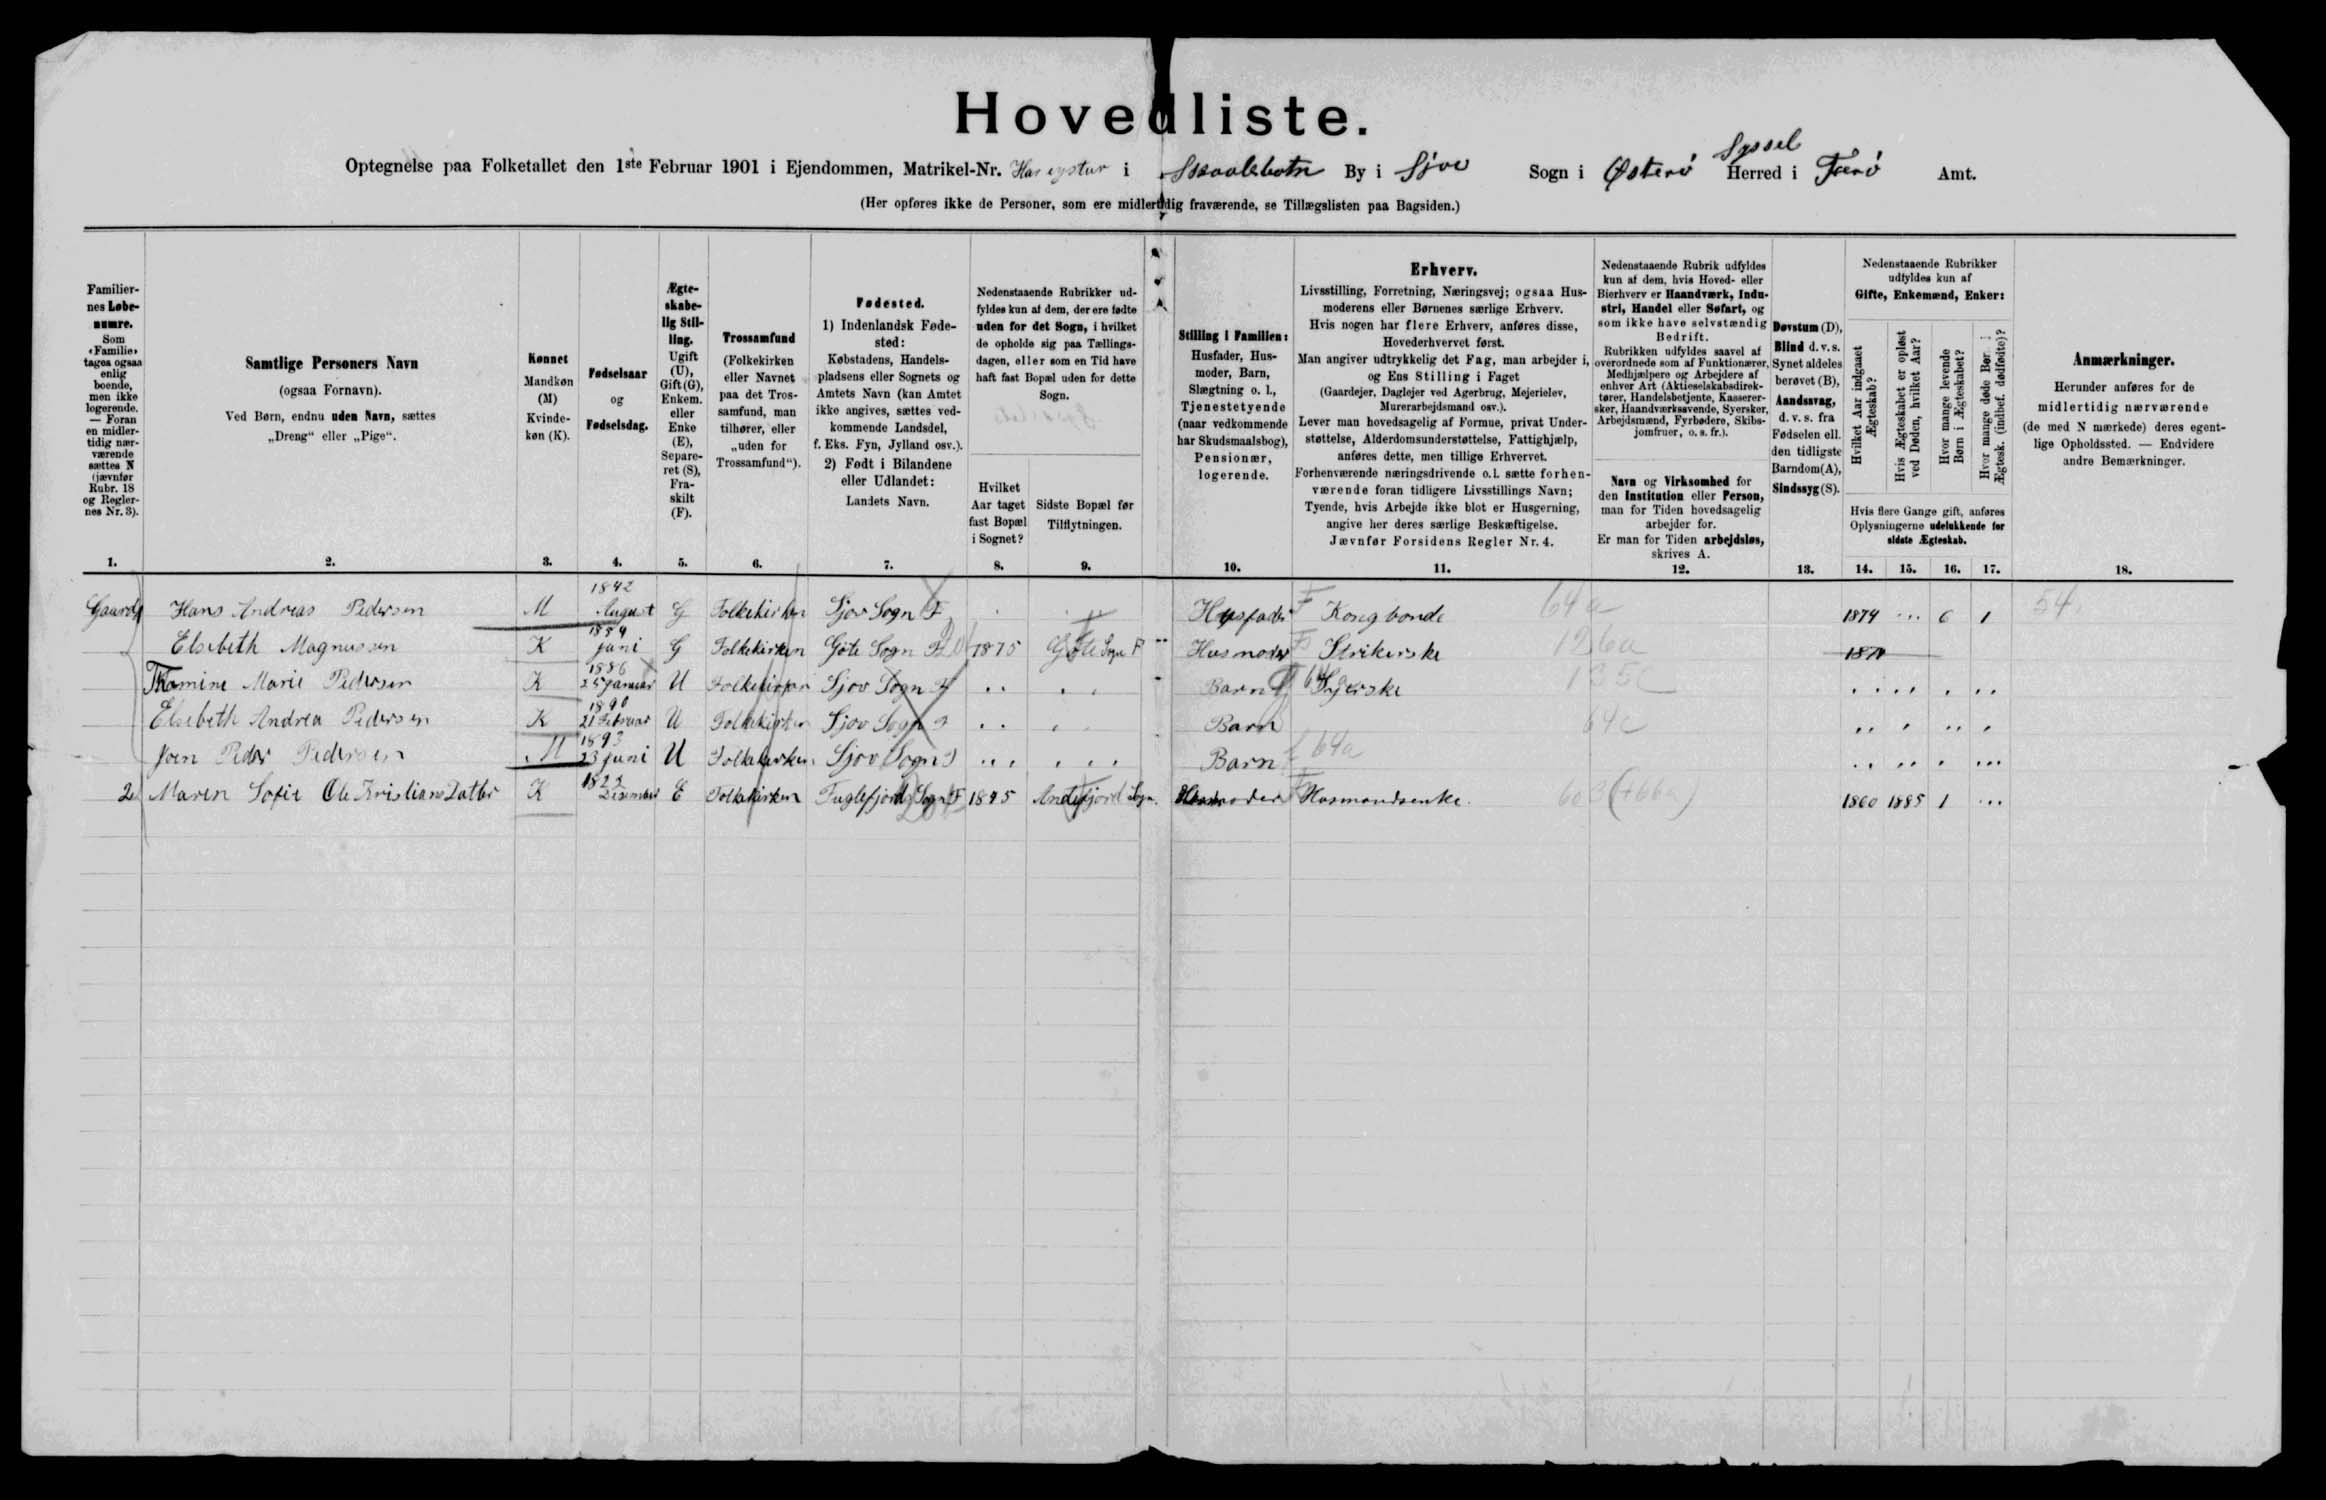 Hovedliste.
Optegnelse paa Folketallet den 1ste Februar 1901 i Ejendommen, Matrikel-Nr. Har eystur i Skaalebotn By i Sjov Sogn i Østerø Syssel Herred i Færø Amt.
(Her opføres ikke de Personer, som ere midlertidig fraværende, se Tillægslisten paa Bagsiden.)
Familier-
nes Løbe-
numre.
Som
«Familie»
tages ogsaa
enlig
boende,
men ikke
logerende.
— Foran
en midler-
tidig nær-
værende
sættes N
(jævnfør
Rubr. 18
og Regler-
nes Nr. 3).
1.
Samtlige Personers Navn
(ogsaa Fornavn).
Ved Børn, endnu uden Navn, sættes
„Dreng“ eller „Pige“.
2.
Kønnet
Mandkøn
(M)
Kvinde-
køn (K).
3.
Fødselsaar
og
Fødselsdag.
4.
Ægte-
skabe-
lig Stil-
ling.
Ugift
(U),
Gift (G),
Enkem.
eller
Enke
(E),
Separe-
ret (S),
Fra-
skilt
(F).
5.
Trossamfund
(Folkekirken
eller Navnet
paa det Tros-
samfund, man
tilhører, eller
„uden for
Trossamfund“).
6.
Fødested.
1) IndenlandskFøde-
sted:
Købstadens, Handels-
pladsens eller Sognets og
Amtets Navn (kan Amtet
ikke angives, sættes ved-
kommende Landsdel,
f. Eks. Fyn, Jylland osv.).
2) Født i Bilandene
eller Udlandet:
Landets Navn.
7.
Nedenstaaende Rubrikker ud-
fyldes kun af dem, der ere fødte
uden for det Sogn, i hvilket
de opholde sig paa Tællings-
dagen, eller som en Tid have
haft fast Bopæl uden for dette
Sogn.
Hvilket
Aar taget
fast Bopæl
i Sognet?
8.
Sidste Bopæl før
Tilflytningen.
9.
Stilling i Familien:
Husfader, Hus-
moder, Barn,
Slægtning o. l.,
Tjenestetyende
(naar vedkommende
har Skudsmaalsbog),
Pensionær,
logerende.
10.
Erhverv.
Livsstilling, Forretning, Næringsvej; ogsaa Hus-
moderens eller Børnenes særlige Erhverv.
Hvis nogen har flere Erhverv, anføres disse,
Hovederhvervet først.
Man angiver udtrykkelig det Fag, man arbejder i,
og Ens Stilling i Faget
(Gaardejer, Daglejer ved Agerbrug, Mejerielev,
Murerarbejdsmand osv.).
Lever man hovedsagelig af Formue, privat Under-
støttelse, Alderdomsunderstøttelse, Fattighjælp,
anføres dette, men tillige Erhvervet.
Forhenværende næringsdrivende o.l. sætte forhen-
værende foran tidligere Livsstillings Navn;
Tyende, hvis Arbejde ikke blot er Husgerning,
angive her deres særlige Beskæftigelse.
Jævnfør Forsidens Regler Nr. 4.
11.
Nedenstaaende Rubrik udfyldes
kun af dem, hvis Hoved- eller
Bierhverv er Haandværk, Indu-
stri, Handel eller Søfart, og
som ikke have selvstændig
Bedrift.
Rubrikken udfyldes saavel af
overordnede som af Funktionærer,
Medhjælpere og Arbejdere af
enhver Art (Aktieselskabsdirek-
tører, Handelsbetjente, Kasserer-
sker, Haandværkssvende, Syersker,
Arbejdsmænd, Fyrbødere, Skibs-
jomfruer, o. s. fr.).
Navn og Virksomhed for
den Institution eller Person,
man for Tiden hovedsagelig
arbejder for.
Er man for Tiden arbejdsløs,
skrives A.
12.
Døvstum (D),
Blind d. v. s.
Synet aldeles
berøvet (B),
Aandssvag,
d. v. s. fra
Fødselen ell.
den tidligste
Barndom (A),
Sindssyg (S).
13.
Nedenstaaende Rubrikker
udfyldes kun af
Gifte, Enkemænd, Enker:
Hvilket Aar indgaaet
Ægteskab?
Hvis Ægteskabet er opløst
ved Døden, hvilket Aar?
Hvor mange levende
Børn i Ægteskabet?
Hvor mange døde Børn i
Ægtesk. (indbef. dødfødte)?
Hvis flere Gange gift, anføres
Oplysningerne udelukkende for
sidste Ægteskab.
14. 15. 16. 17.
Anmærkninger.
Herunder anføres for de
midlertidig nærværende
(de med N mærkede) deres egent-
lige Opholdssted. — Endvidere
andre Bemærkninger.
18.
Hans Andreas Pedersen M 1842 August G Folkekirken Sjov Sogn F Husfader F Kongbonde 64a 1874 6 1 54
Elsebeth Magnussen K Juni G Folkekirken Gøte Sogn F 1875 Gøte Sogn F Husmoder Strikerske 126a
Thomine Marie Pedersen K 1886 25 Januar U Folkekirken Sjov Sogn F Barn Syerske
Elsebeth Andrea Pedersen K 1890 21 Februar U Folkekirken Sjov Sogn F Barn 64c
Joen Peder Pedersen M 1893 23 Juni U Folkekirken Sjov Sogn F Barn 64a
2 Maren Sofie Ole Kristians Datter K December E Folkekirken Fuglefjord Sogn F 1895 Andefjord Sogn. Husmoder Husmandsenke. 1860 1885 1